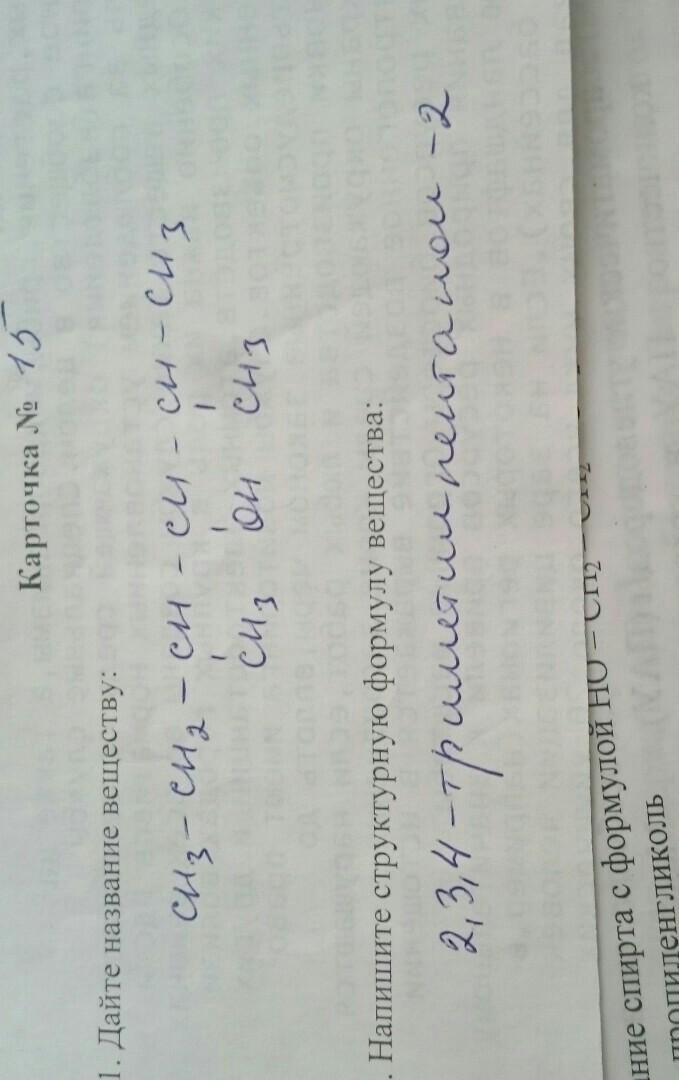 Карточка № 15
1. Дайте название веществу:
CH3 – CH2 – CH – CH – CH – CH3
CH3 OH CH3
. Напишите структурную формулу вещества:
2,3,4 – триметилпентанол – 2
ние спирта с формулой HO – CH2 – CH2
пропиленгликоль